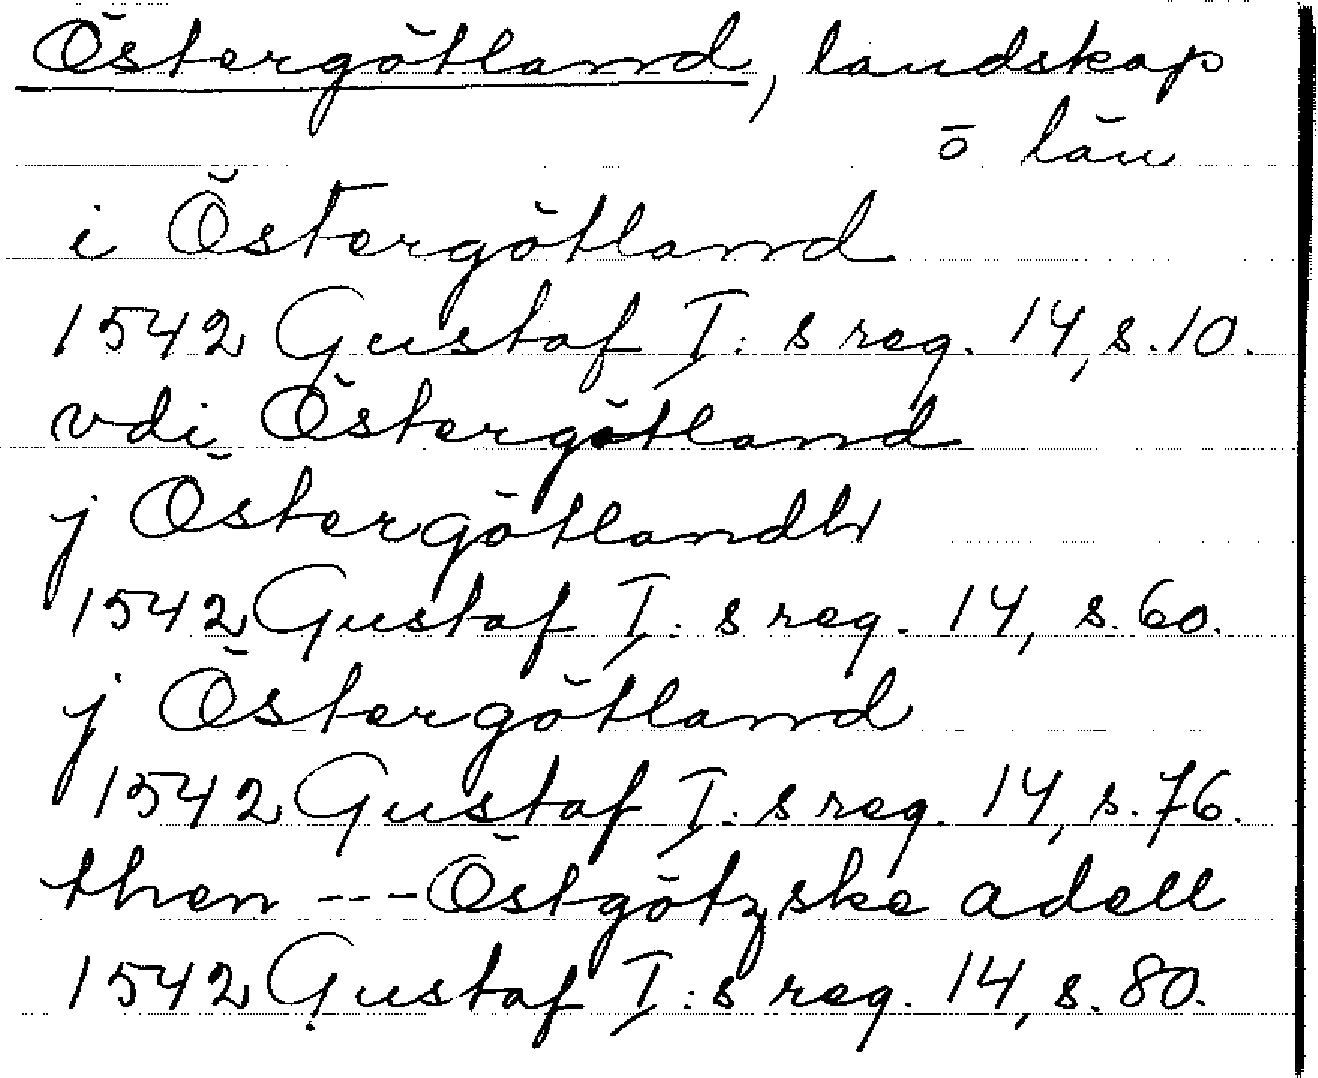 Östergötland, landskap
o län
i Östergötland
1542 Gustaf I:s reg. 14, s. 10.
vdi Östergötland
j Östergötlandh
1542 Gustaf I:s reg. 14, s. 60.
j Östergötland
1542 Gustaf I:s reg. 14, s. 76.
then --- Östgötzske adell
1542 Gustaf I:s reg. 14, s. 80.